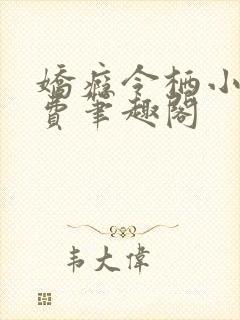 嬌癡令栖小
費筆趣閣
韦大偉